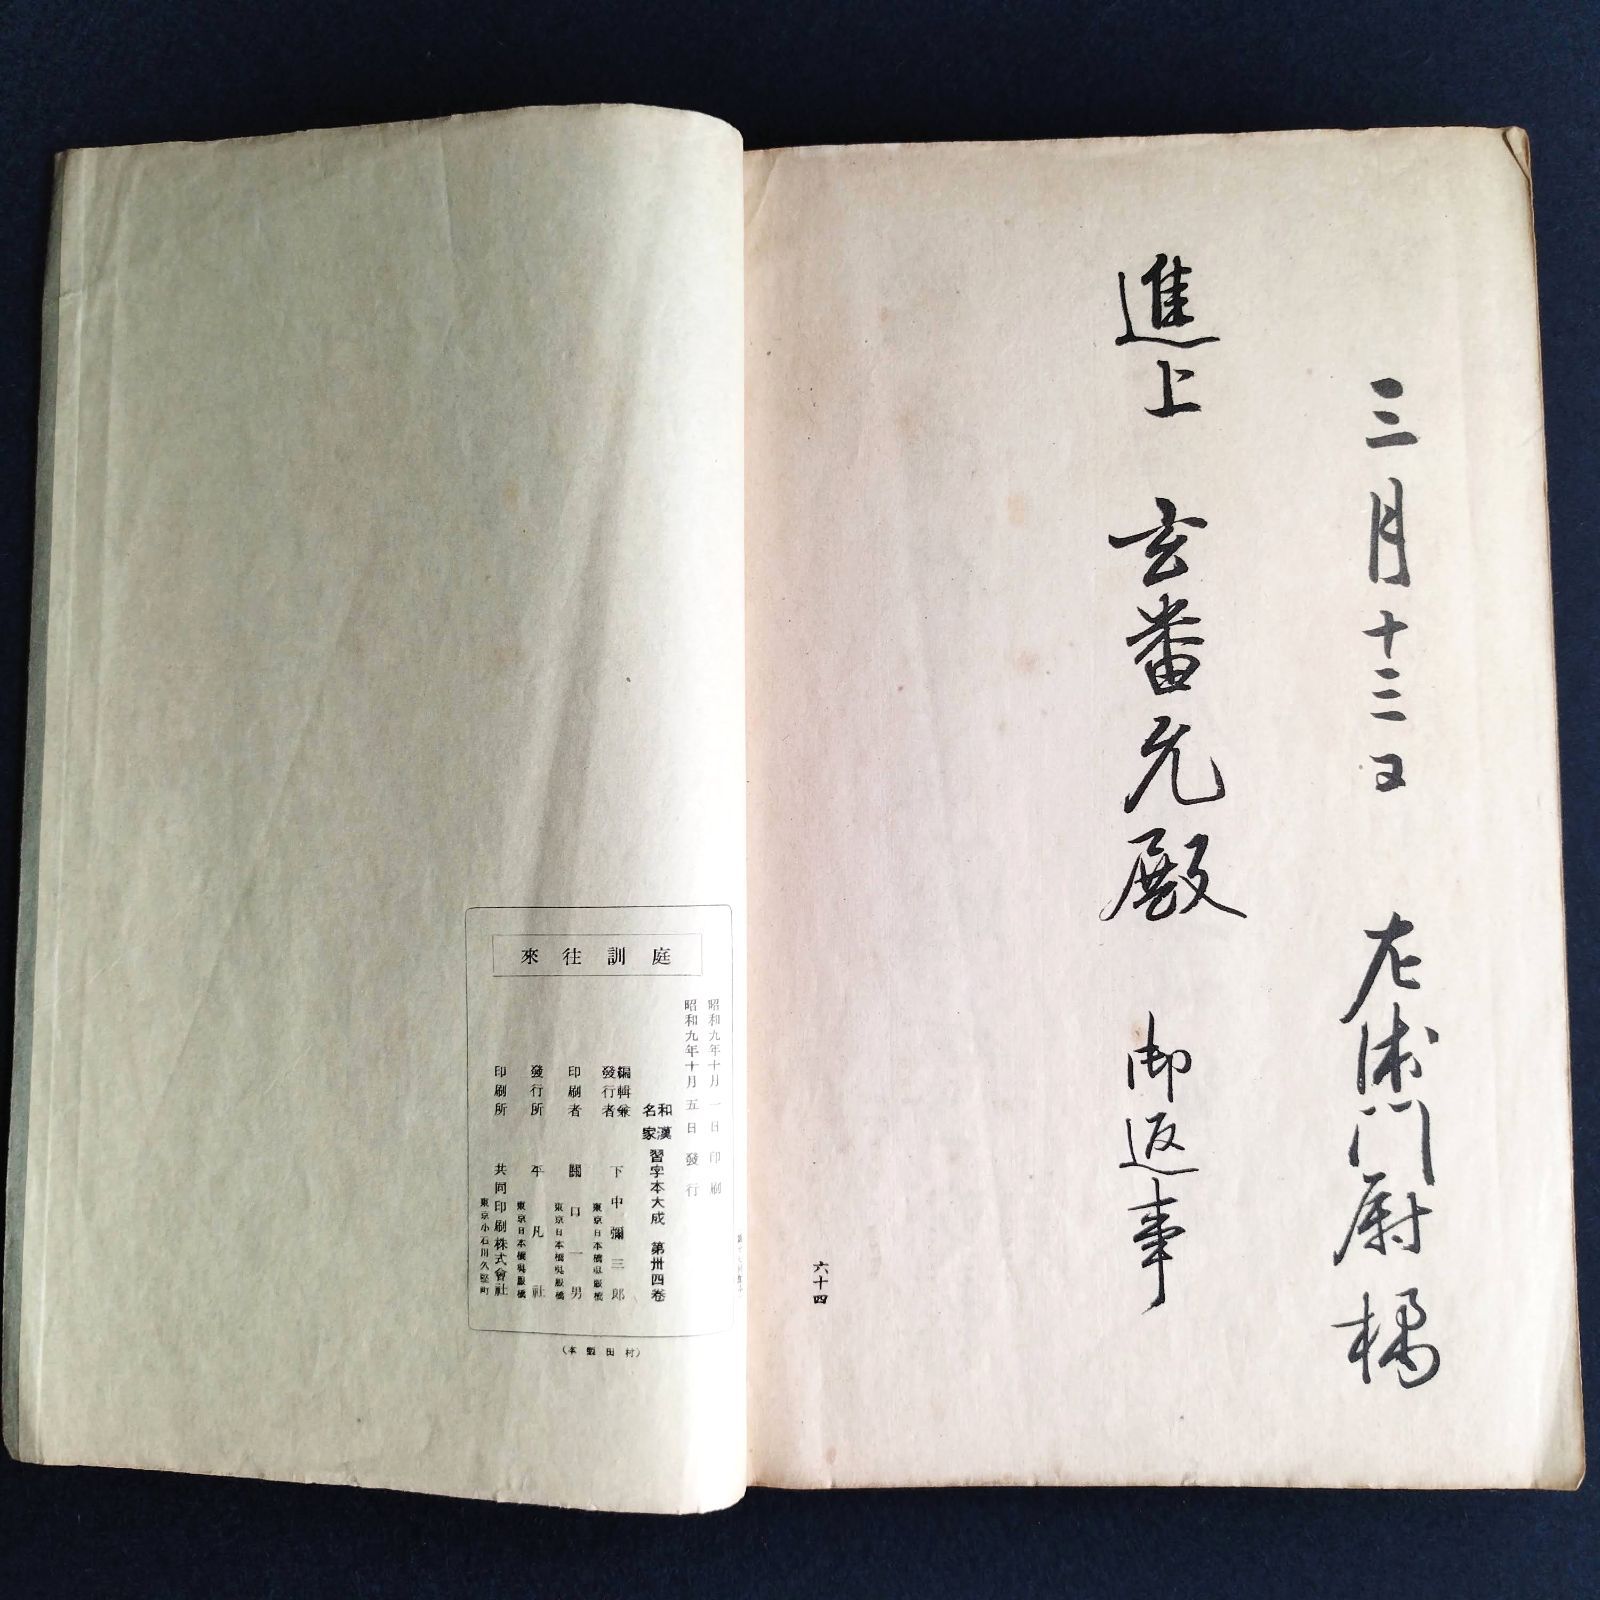 三月十三日　左衛門尉橘
進上　玄蕃允殿　御返事
六十四
庭訓往來
昭和九年十月一日印刷
昭和九年十月五日發行
和漢名家　習字本大成　第卅四卷
編輯兼發行者　下中彌三郎
東京日本橋呉服橋
印刷者　關口一男
東京日本橋呉服橋
發行所　平凡社
東京日本橋呉服橋
印刷所　共同印刷株式會社
東京小石川久堅町
（村田製本）